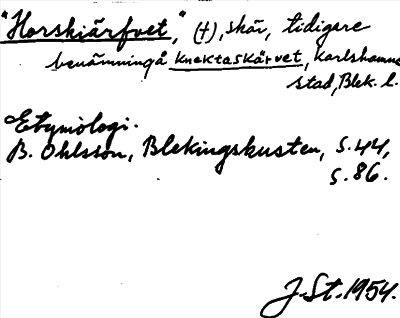 "Horskiärfvet," (†), skär, tidigare
benämning å Knektaskärvet, Karlshamns
stad, Blek. l.
Etymologi.
B. Ohlsson, Blekingskusten, s. 44,
s. 86.
J. St. 1954.